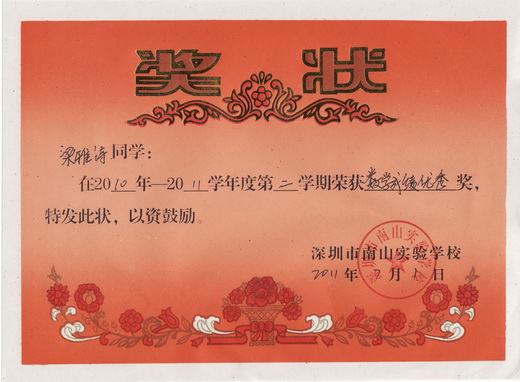 奖状
梁雅诗同学：
在2010年—2011学年度第二学期荣获数学成绩优秀奖，
特发此状，以资鼓励。
深圳市南山实验学校
2011年7月1日
深圳市南山实验学校